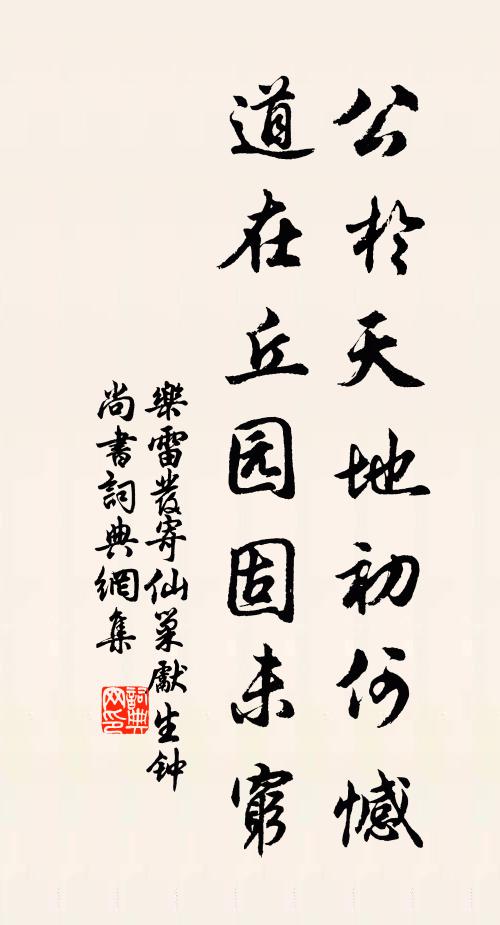 公於天地初何憾
道在丘园固未窮
樂雷發寄仙巢獻生钟
尚書詞典網集
詞典网印